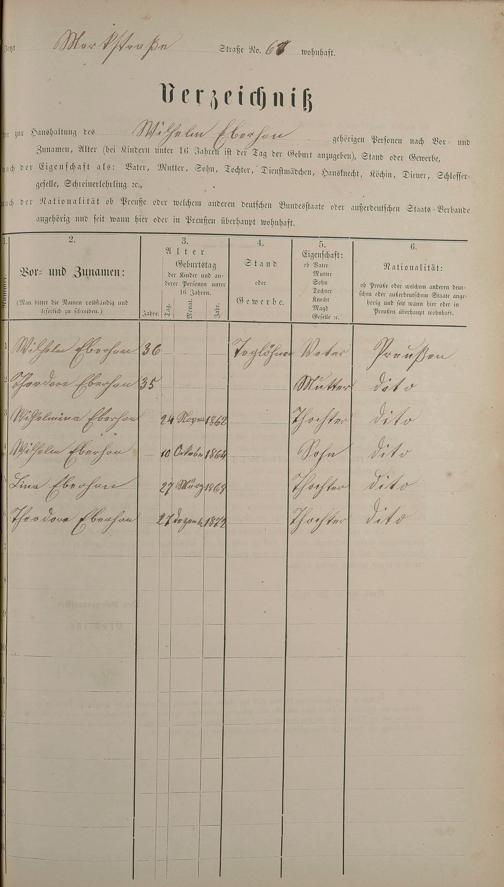 Jetzt Markstraße Straße No. 68 wohnhaft.
Verzeichniß
der zur Haushaltung des Wilhelm Eberhan gehörigen Personen nach Vor- und
Zunamen, Alter (bei Kindern unter 16 Jahren ist der Tag der Geburt anzugeben), Stand oder Gewerbe,
nach der Eigenschaft als: Vater, Mutter, Sohn, Tochter, Dienstmädchen, Hausknecht, Köchin, Diener, Schlosser-
geselle, Schreinerlehrling ꝛc.,
nach der Nationalität ob Preuße oder welchem anderen deutschen Bundesstaate oder außerdeutschen Staats-Verbande
angehörig und seit wann hier oder in Preußen überhaupt wohnhaft.
1. 2. 3. 4. 5. 6.
Vor- und Zunamen:
(Man bittet die Namen vollständig und
leserlich zu schreiben.)
Alter
Geburtstag
der Kinder und an-
derer Personen unter
16 Jahren.
Jahre. Tag. Monat. Jahr.
Stand
oder
Gewerbe.
Eigenschaft:
ob Vater
Mutter
Sohn
Tochter
Knecht
Magd
Geselle ꝛc.
Nationalität:
ob Preuße oder welchem anderen deut-
schen oder außerdeutschen Staate ange-
hörig und seit wann hier oder in
Preußen überhaupt wohnhaft.
Wilhelm Eberhan 36 Taglöhner Vater Preußen
Theodore Eberhan 35 Mutter dito
3 Wilhelmina Eberhan 24 Novem 1862 Thochter dito
4 Wilhelm Eberhan 10 Octobe 1864 Sohn dito
Lina Eberhan 27 März Thochter dito
Theodore Eberhan 27 Dezemb 1872 Thochter dito